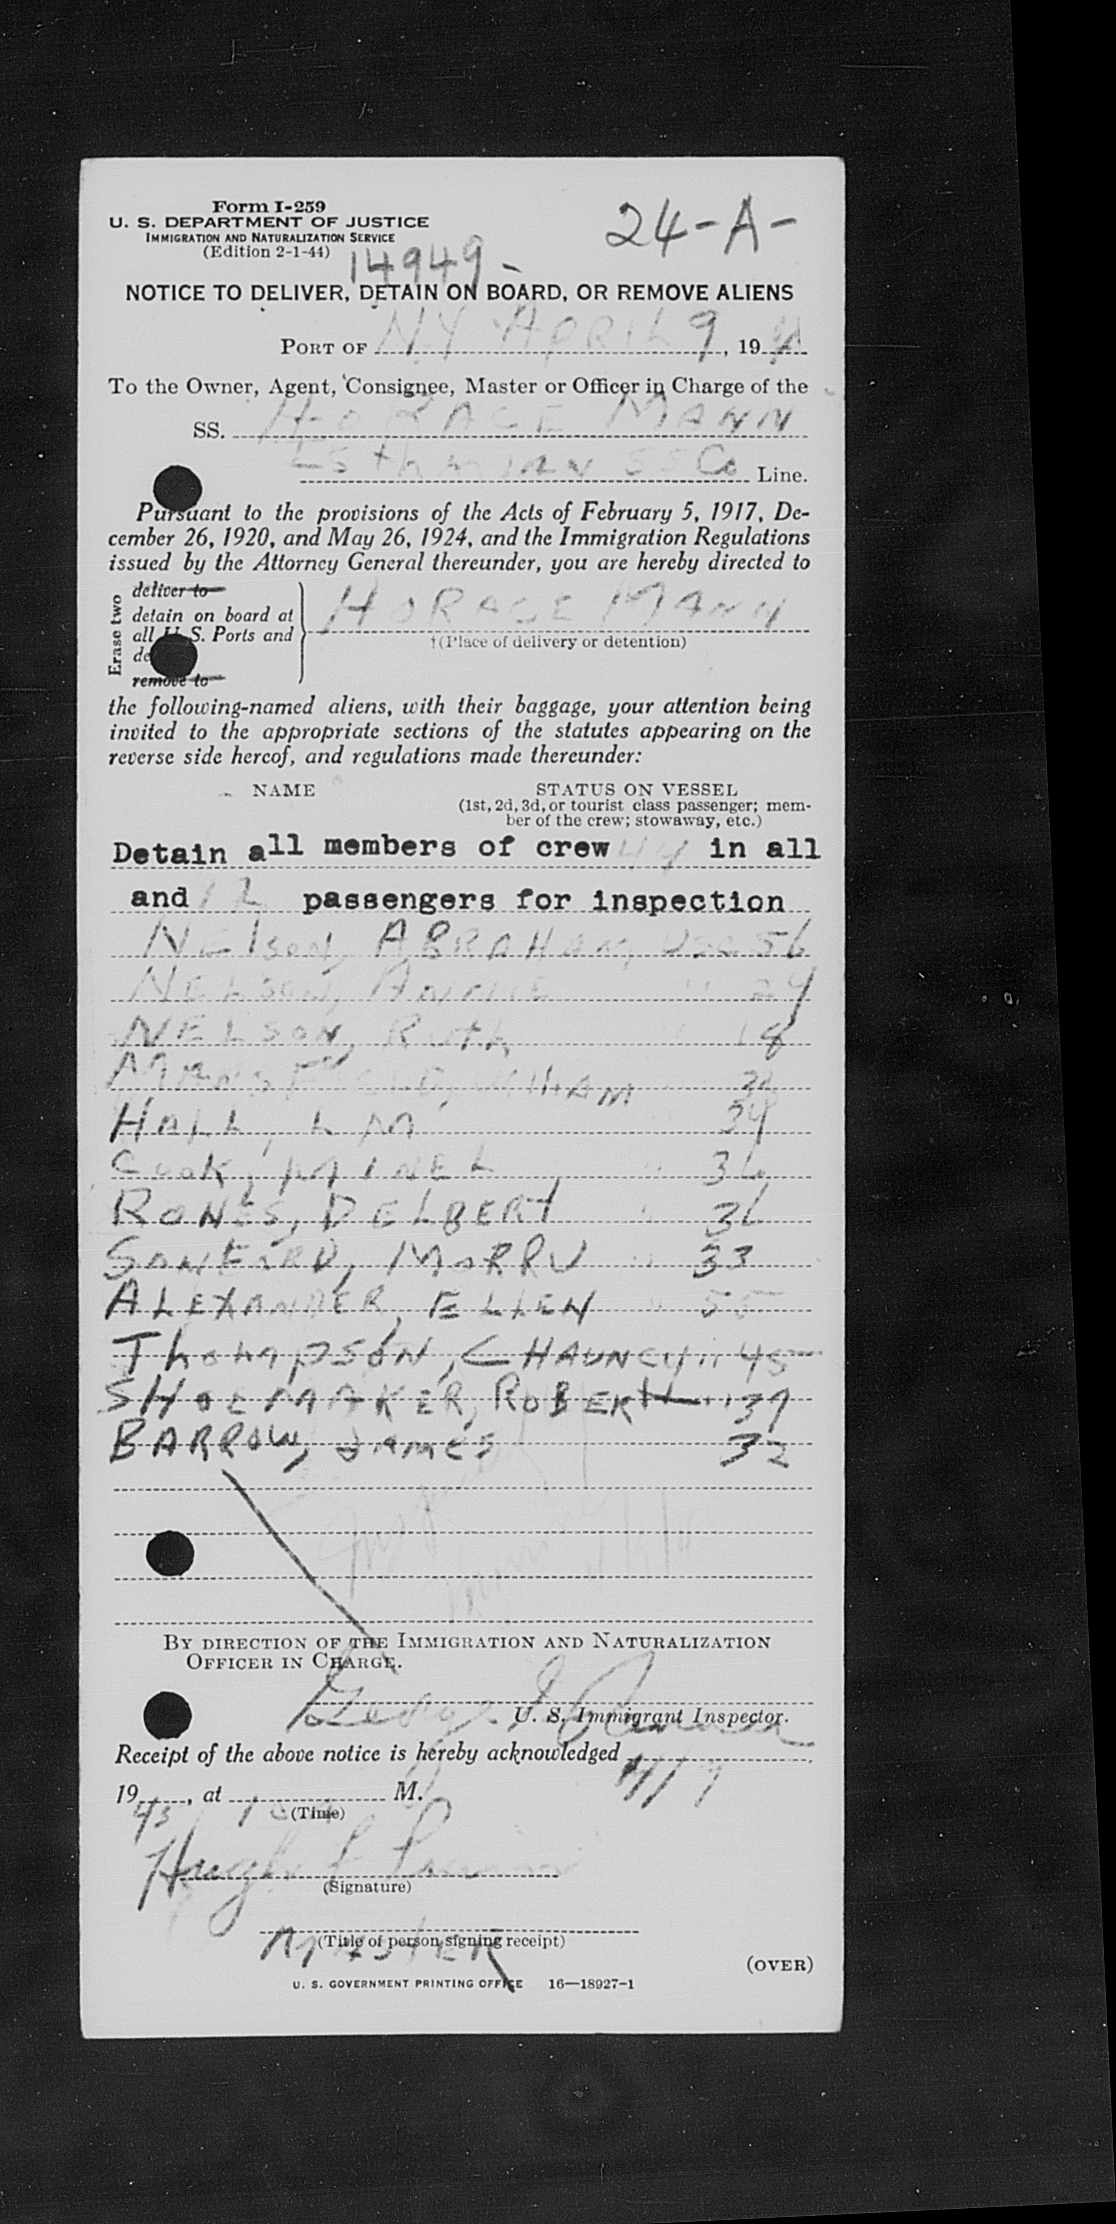 Form I-259
U. S. DEPARTMENT OF JUSTICE
IMMIGRATION AND NATURALIZATION SERVICE
(Edition 2-1-44)
24-A-
14949-
NOTICE TO DELIVER, DETAIN ON BOARD, OR REMOVE ALIENS
PORT OF N.Y APRIL 9, 19
To the Owner, Agent, Consignee, Master or Officer in Charge of the
SS. HORACE MANN
Isthmian SS Co Line.
Pursuant to the provisions of the Acts of February 5, 1917, De-
cember 26, 1920, and May 26, 1924, and the Immigration Regulations
issued by the Attorney General thereunder, you are hereby directed to
Erase two
deliver to
detain on board at
all U. S. Ports and
remove to
HORACE MANN
†(Place of delivery or detention)
the following-named aliens, with their baggage, your attention being
invited to the appropriate sections of the statutes appearing on the
reverse side hereof, and regulations made thereunder:
NAME
STATUS ON VESSEL
(1st, 2d, 3d, or tourist class passenger; mem-
ber of the crew; stowaway, etc.)
Detain all members of crew 44 in all
and 12 passengers for inspection
NELSON, ABRAHAM, USC 56
NELSON, ANNIE " 24
NELSON, Ruth " 18
WILLIAM
HALL, L M 34
COOK, 36
RONES, DELBERT " 36
SANFORD, " 33
ALEXANDER, ELLEN " 55
THOMPSON, CHAUNCY " 45
SHOEMAKER, ROBERT " 39
BARROW, JAMES 32
BY DIRECTION OF THE IMMIGRATION AND NATURALIZATION
OFFICER IN CHARGE.
George
U. S. Immigrant Inspector.
Receipt of the above notice is hereby acknowledged 4/9
1945, at M.
(Time)
Hugh
(Signature)
MASTER
(Title of person signing receipt)
(OVER)
U. S. GOVERNMENT PRINTING OFFICE 16—18927-1